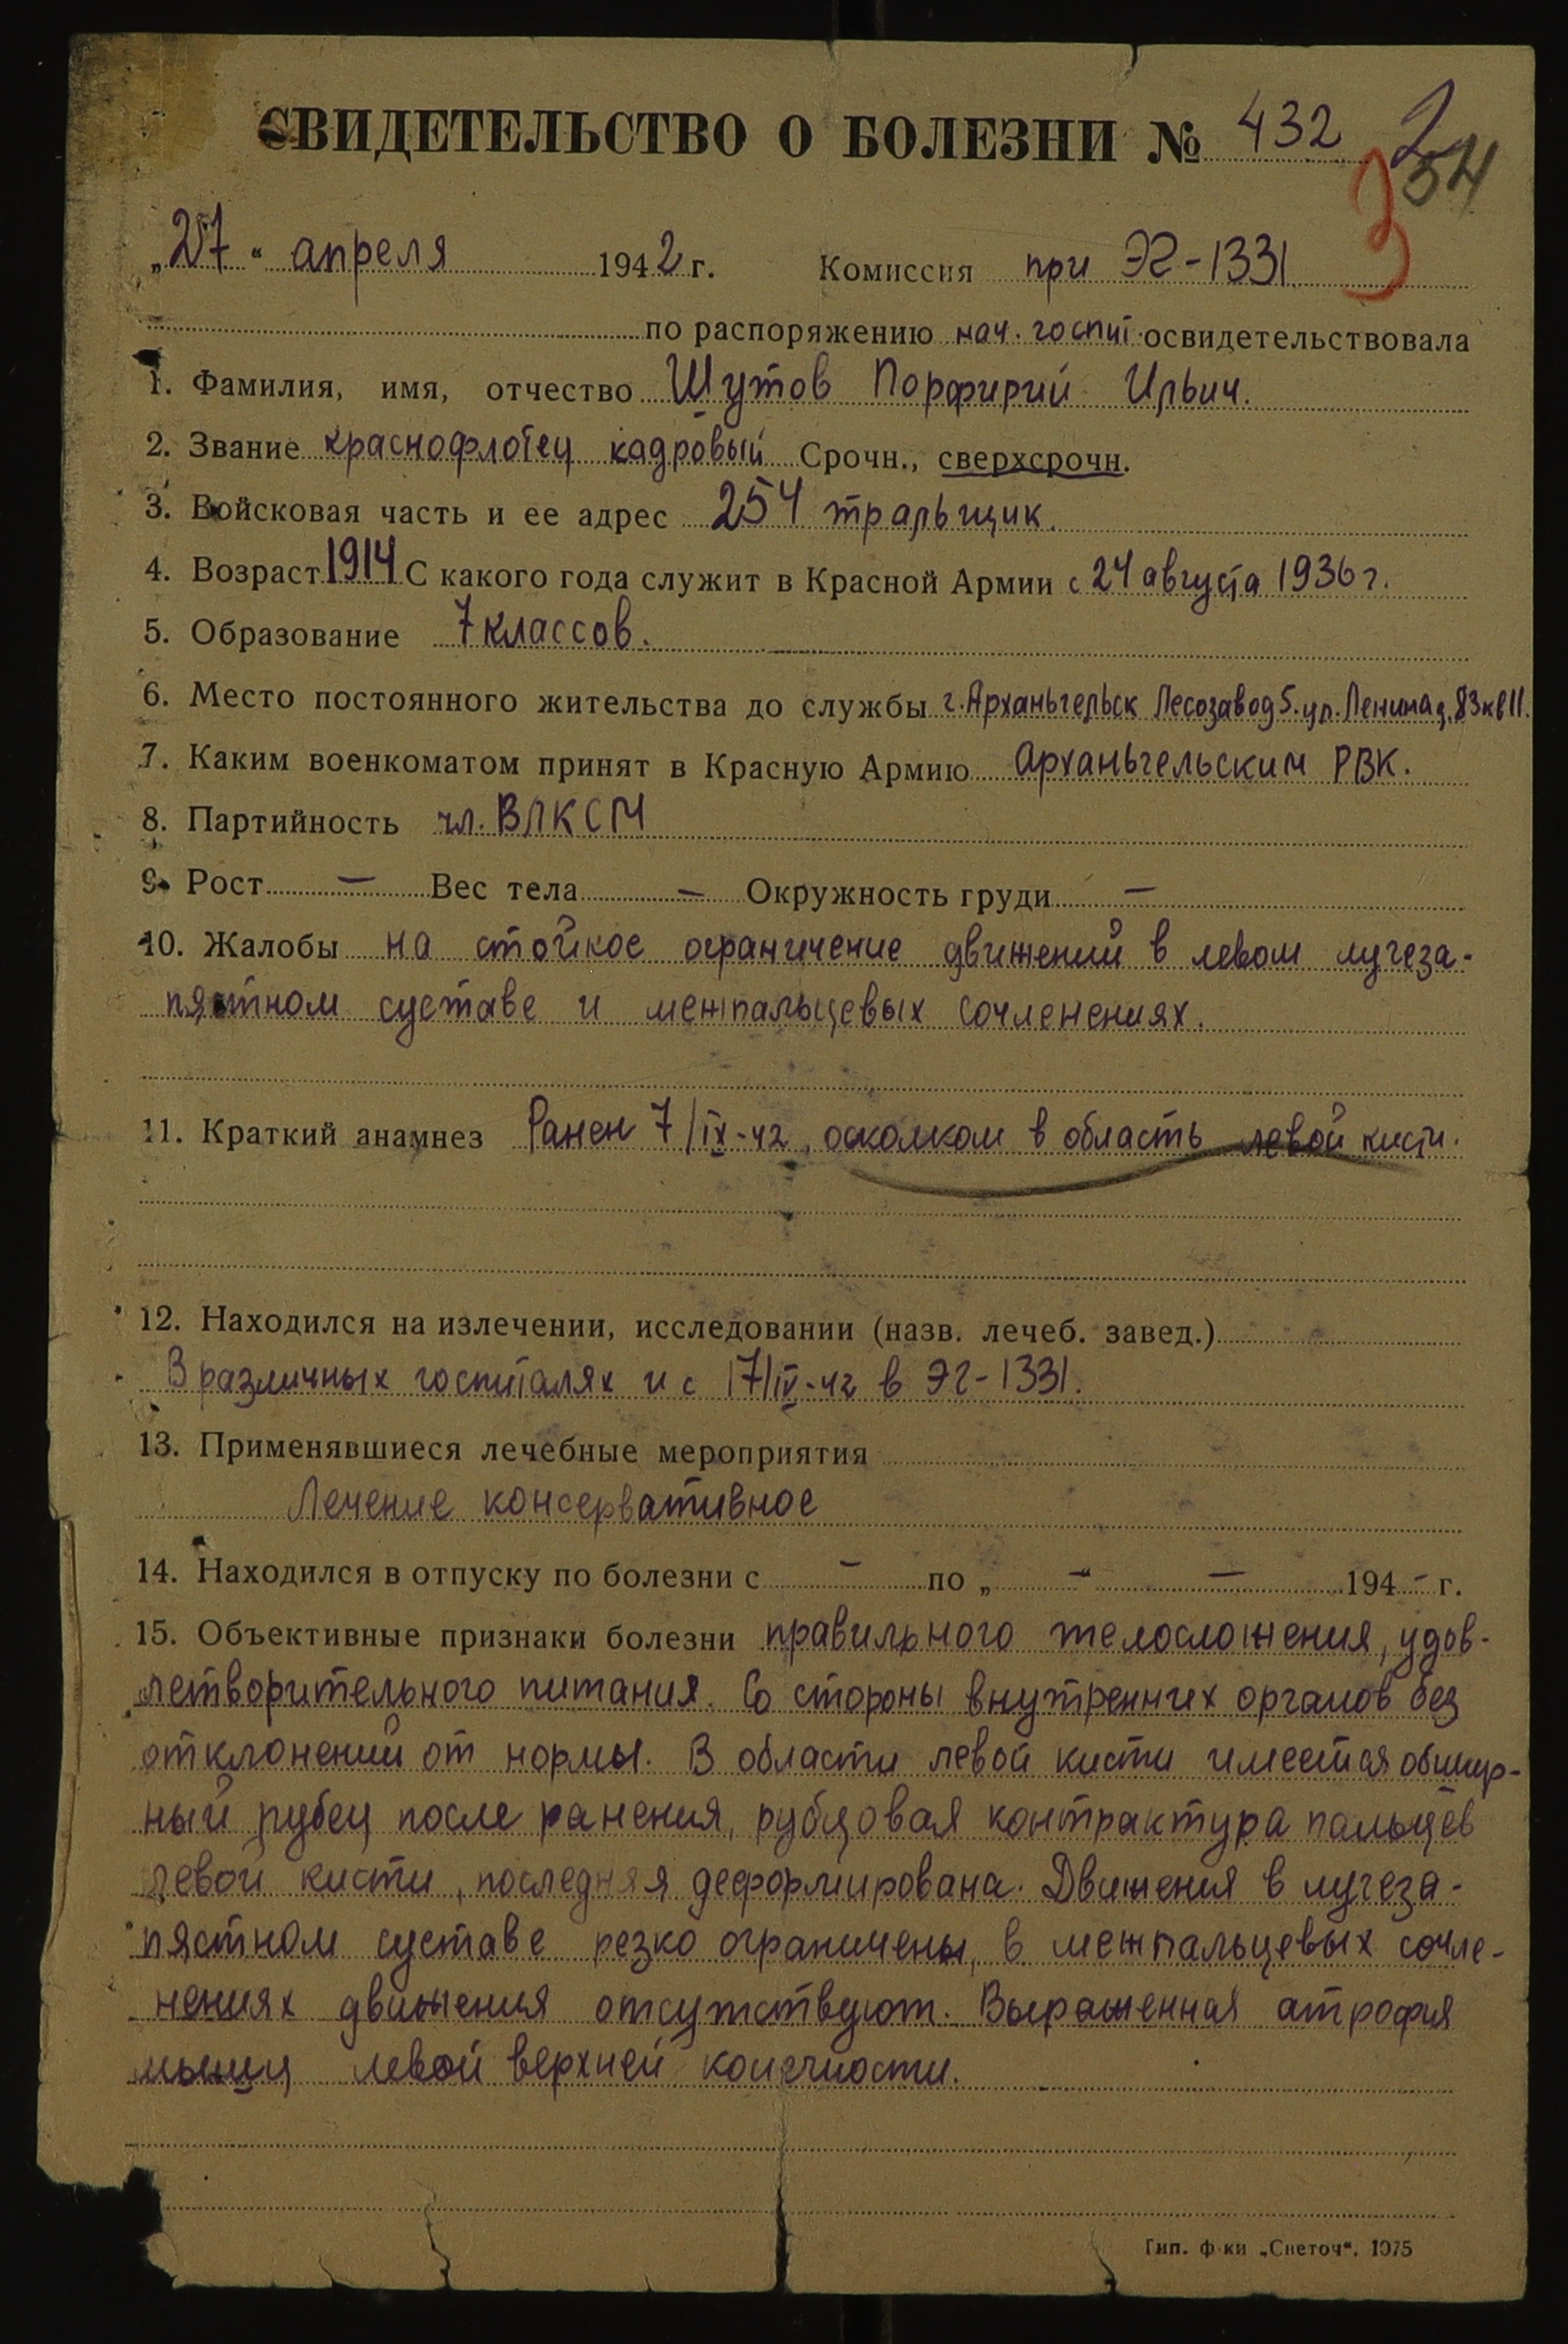 СВИДЕТЕЛЬСТВО О БОЛЕЗНИ № 432 2
54
3
„27“ апреля 1942 г. Комиссия при ЭГ-1331
по распоряжению нач. госпит. освидетельствовала
1. Фамилия, имя, отчество Шутов Порфирий Ильич.
2. Звание краснофлотец кадровый Срочн., сверхсрочн.
3. Войсковая часть и ее адрес 254 тральщик.
4. Возраст 1914 С какого года служит в Красной Армии с 24 августа 1936 г.
5. Образование 7 классов.
6. Место постоянного жительства до службы г. Арханьгельск Лесозавод 5. ул. Ленина д. 83 кв 11.
7. Каким военкоматом принят в Красную Армию Арханьгельским РВК.
8. Партийность чл. ВЛКСМ
9. Рост — Вес тела — Окружность груди —
10. Жалобы на стойкое ограничение движений в левом лучеза-
пястном суставе и межпальцевых сочленениях.
11. Краткий анамнез Ранен 7/IX-42, осколком в область левой кисти.
12. Находился на излечении, исследовании (назв. лечеб. завед.)
В различных госпиталях и с 17/IV-42 в ЭГ-1331.
13. Применявшиеся лечебные мероприятия
Лечение консервативное
14. Находился в отпуску по болезни с — по „ — “ — 194 - г.
15. Объективные признаки болезни правильного телосложения, удов-
летворительного питания. Со стороны внутренних органов без
отклонений от нормы. В области левой кисти имеется обшир-
ный рубец после ранения, рубцовая контрактура пальцев
левой кисти, последняя деформирована. Движения в лучеза-
пястном суставе резко ограничены, в межпальцевых сочле-
нениях движения отсутствуют. Выраженная атрофия
мышц левой верхней конечности.
Тип. ф-ки „Светоч“. 1075